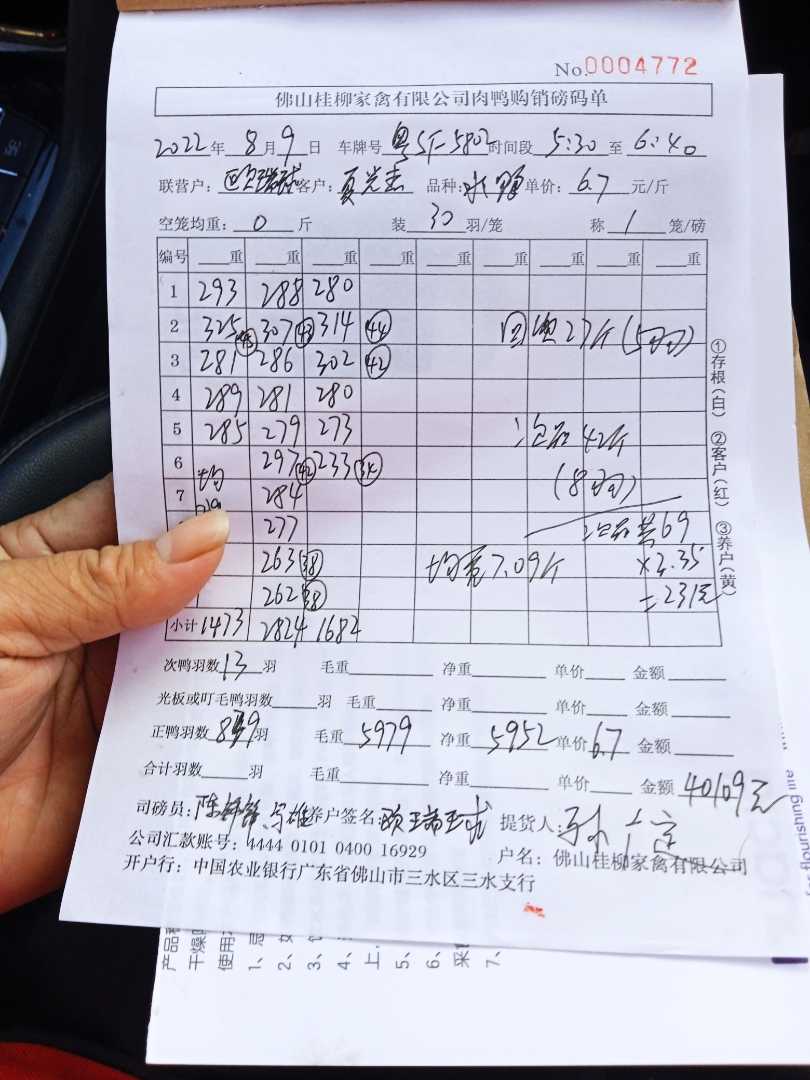 No.0004772
佛山桂柳家禽有限公司肉鸭购销磅码单
2022年8月9日 车牌号 粤SF-5802 时间段 5:30 至 6:40
联营户: 客户: 夏光 品种: 水鸭 单价: 6.7 元/斤
空笼均重: 0 斤 装 30 羽/笼 称 1 笼/磅
编号 重 重 重 重 重 重 重 重 重
1 293 288 280
2 325 307 314 44 回 27斤(5羽)
3 281 286 302 42
4 289 281 280
5 285 279 273 42斤
6 均 297 42 233 34 (8羽)
7 284
277 共69
263 38 均重7.09斤 ×3.35
262 38 =231元
小计 1473 2824 1682
次鸭羽数 13 羽 毛重 净重 单价 金额
光板或叮毛鸭羽数 羽 毛重 净重 单价 金额
正鸭羽数 839 羽 毛重 5979 净重 5952 单价 6.7 金额
合计羽数 羽 毛重 净重 单价 金额 40109元
司磅员: 陈 养户签名: 提货人:
公司汇款账号: 4444 0101 0400 16929 户名: 佛山桂柳家禽有限公司
开户行: 中国农业银行广东省佛山市三水区三水支行
①存根(白) ②客户(红) ③养户(黄)
产品
干燥
使用
1、
2、
3、
4、
上
5、
6、
采
7、
flourishing